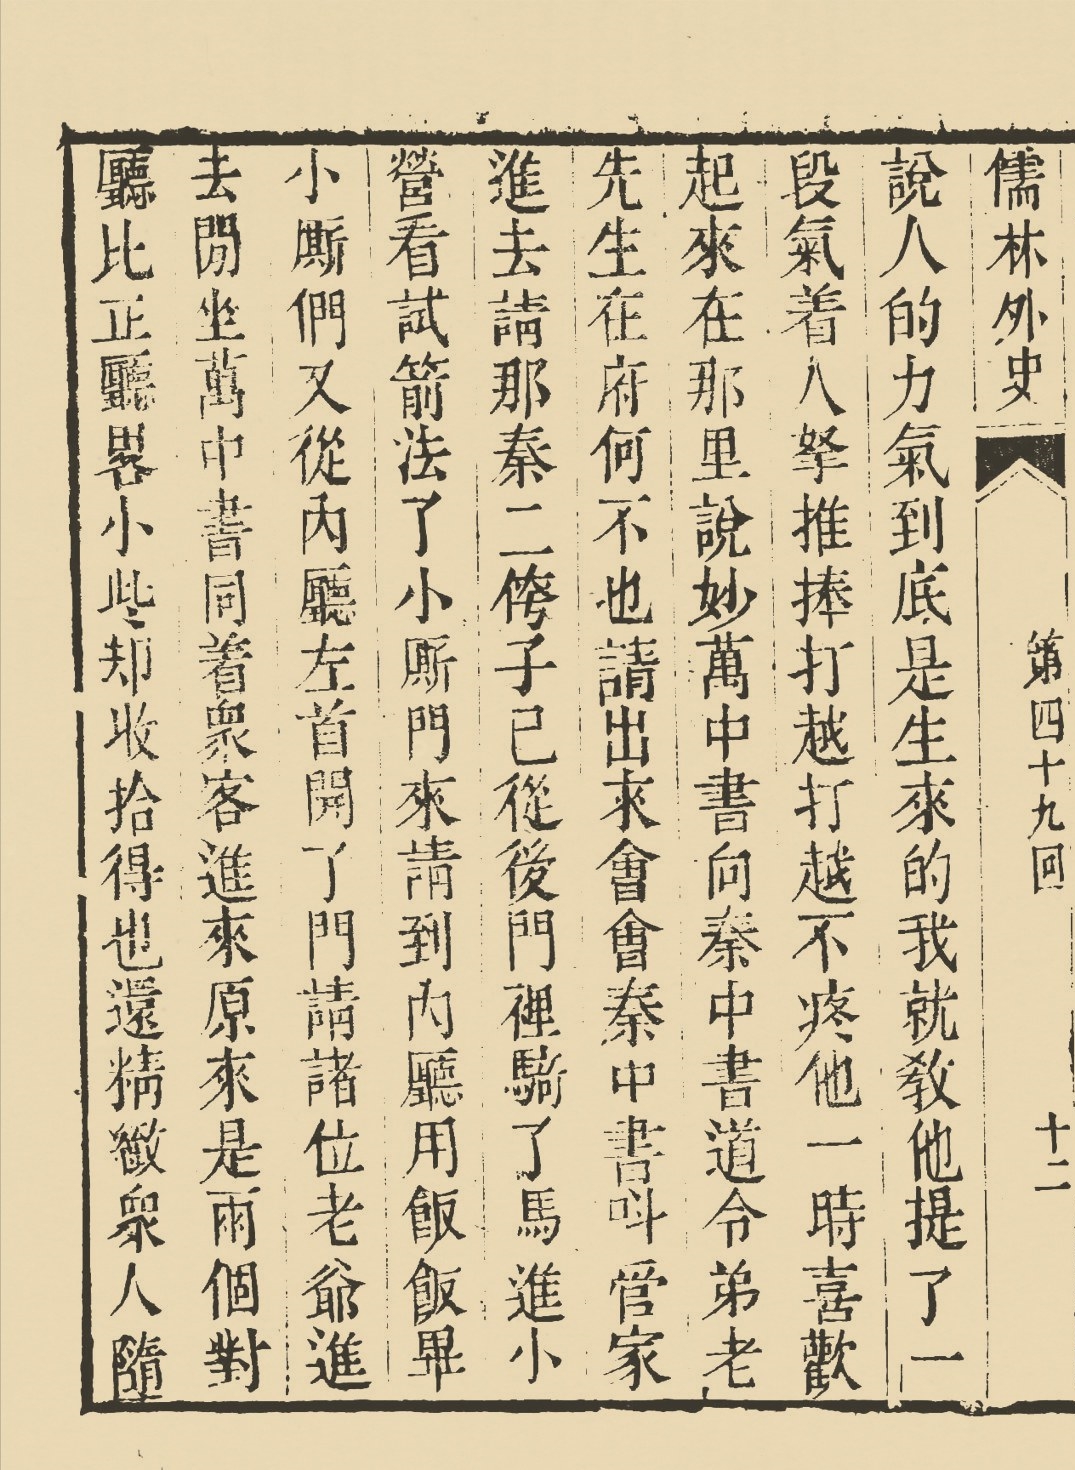 儒林外史
第四十九回
十二
說人的力氣到底是生來的我就教他提了一
段氣着人拏推捧打越打越不疼他一時喜歡
起來在那里說妙萬中書向秦中書道令弟老
先生在府何不也請出來會會秦中書呌管家
進去請那秦二侉子已從後門裡騎了馬進小
營看試箭法了小廝門來請到內廳用飯飯畢
小廝們又從內廳左首開了門請諸位老爺進
去閒坐萬中書同着衆客進來原來是兩個對
廳比正廳畧小些却收拾得也還精緻衆人隨